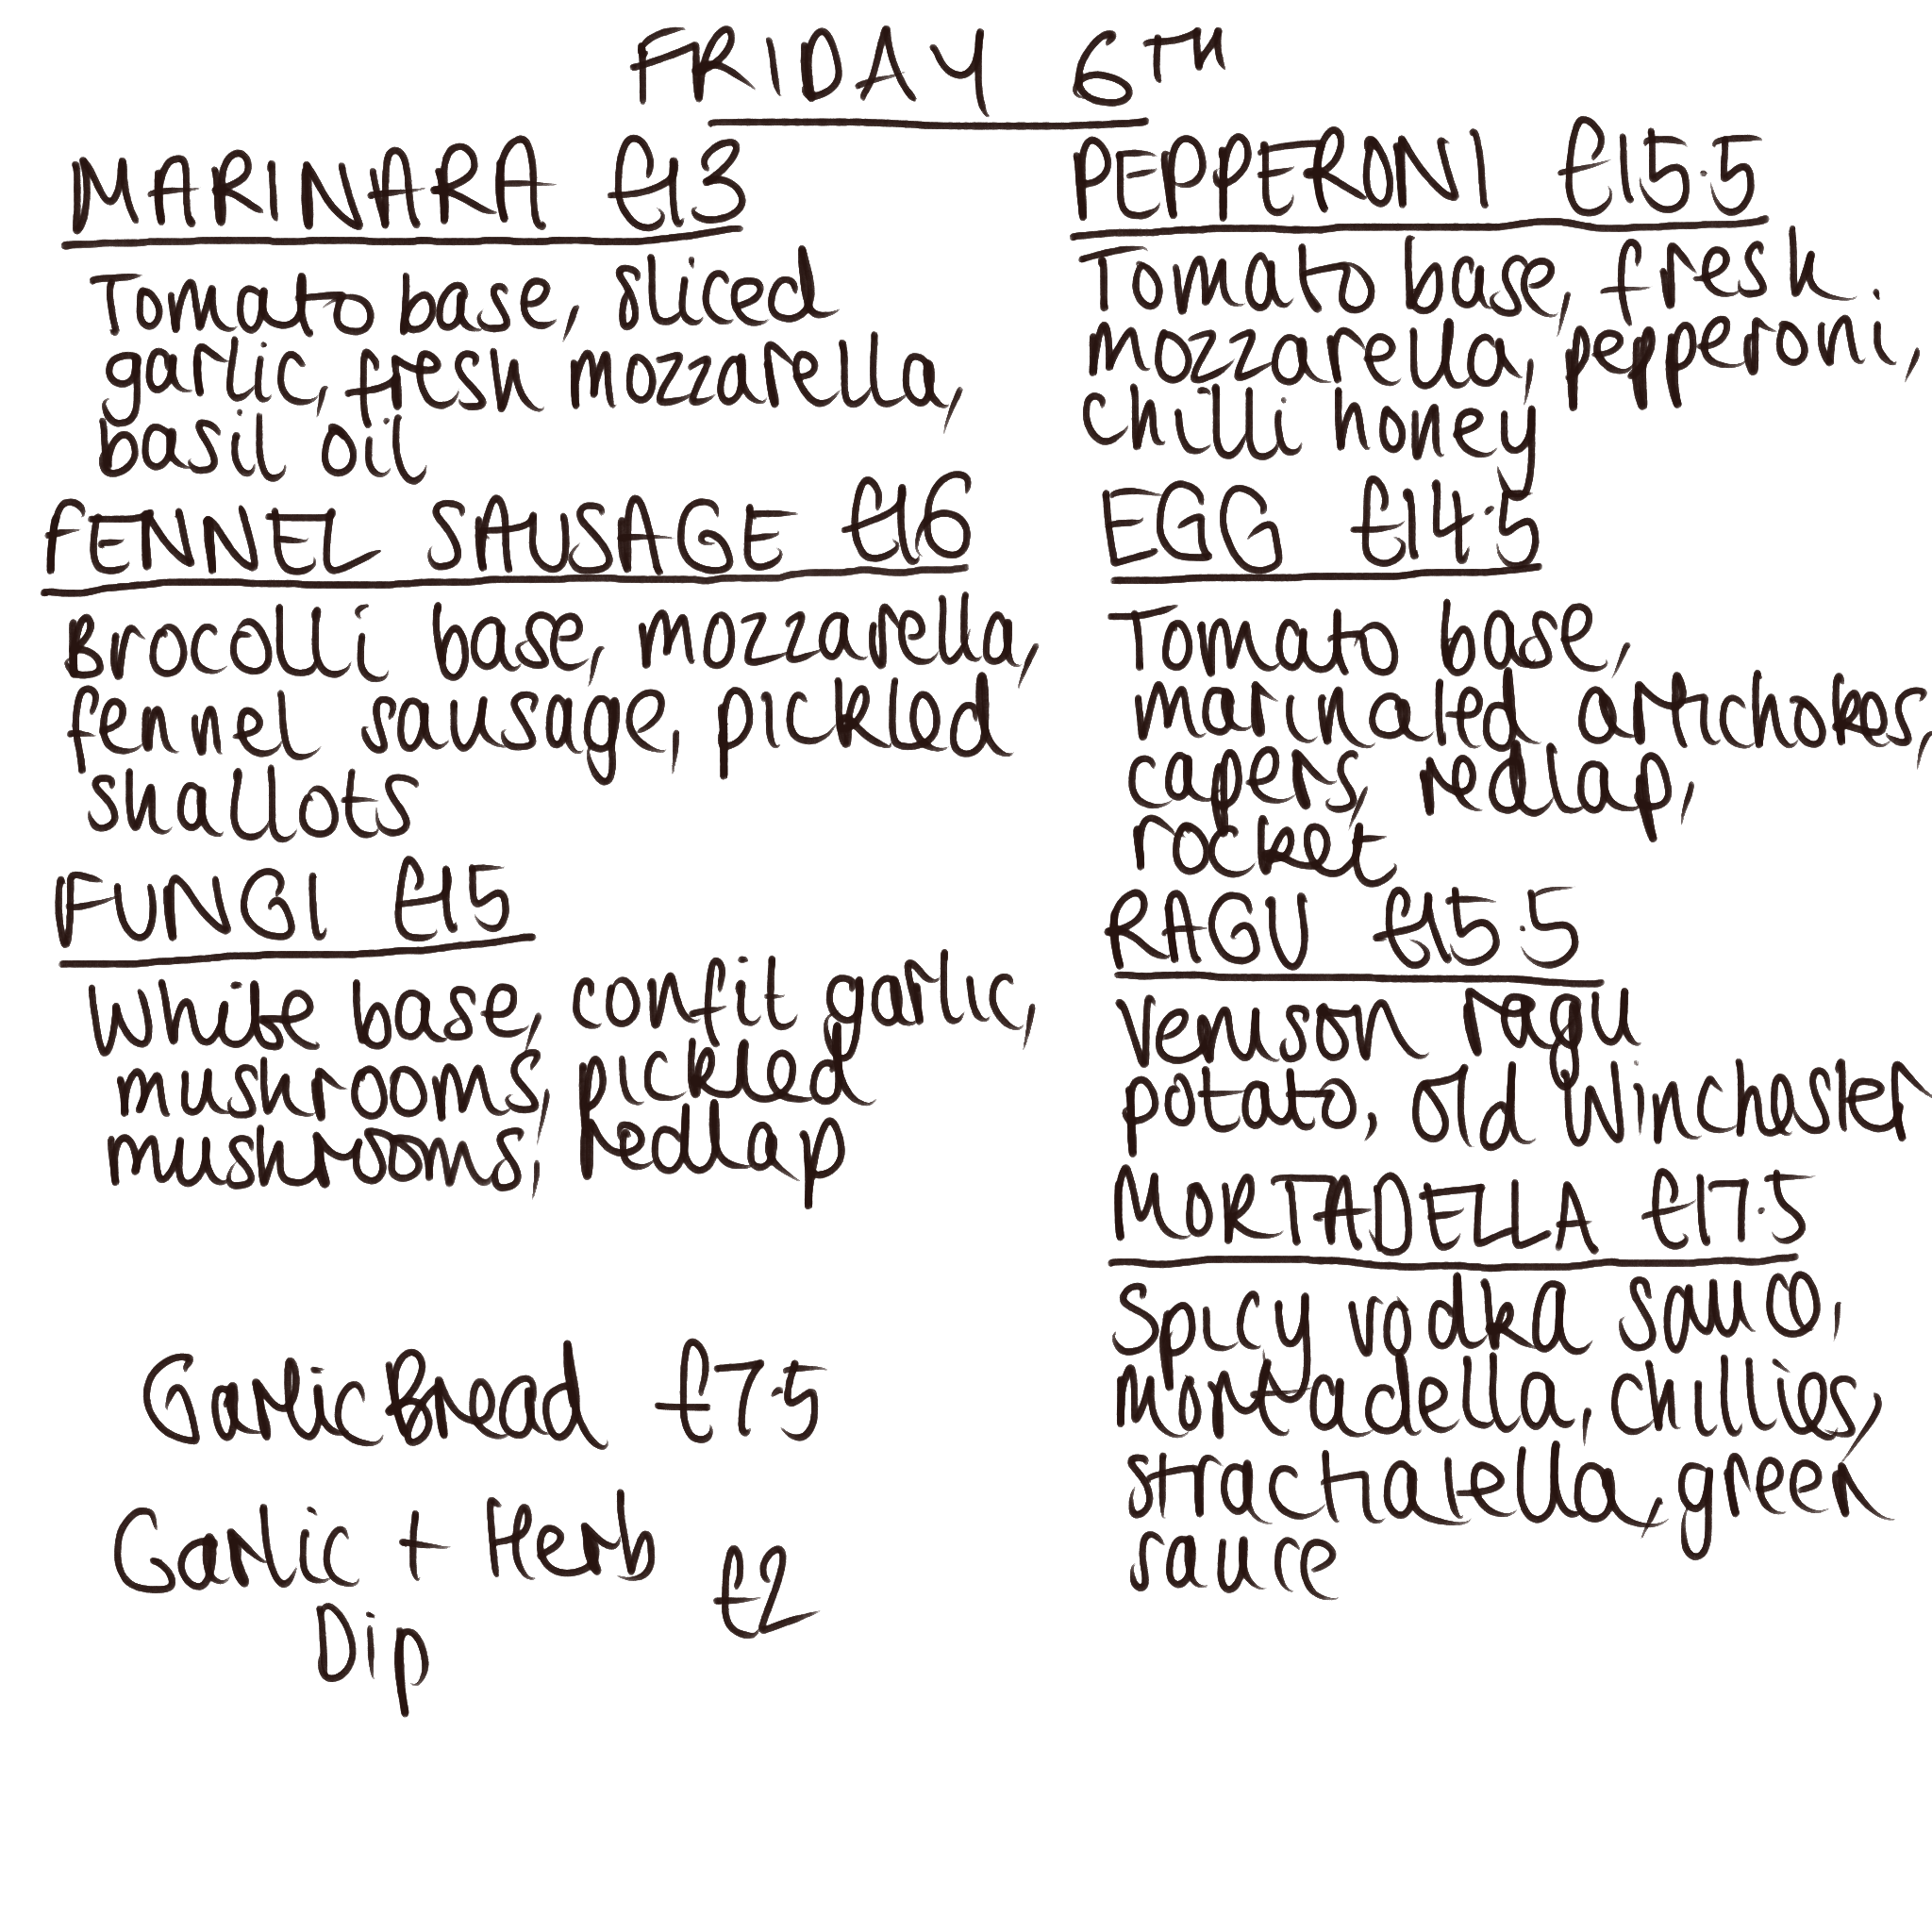 FRIDAY 6TH
MARINARA £13
Tomato base, sliced
garlic, fresh mozzarella,
basil oil
FENNEL SAUSAGE £16
Brocolli base, mozzarella,
fennel sausage, pickled
shallots
FUNGI £15
White base, confit garlic,
mushrooms, pickled
mushrooms, redlap
Garlic Bread £7.5
Garlic + Herb £2
Dip
PEPPERONI £15.5
Tomato base, fresh
mozzarella, pepperoni,
chilli honey
EGG £14.5
Tomato base,
marinated artichokes,
capers, redlap,
rocket
RAGU £15.5
Venison ragu
potato, Old Winchester
MORTADELLA £17.5
Spicy vodka sauce,
mortadella, chillies,
stractiatella, green
sauce